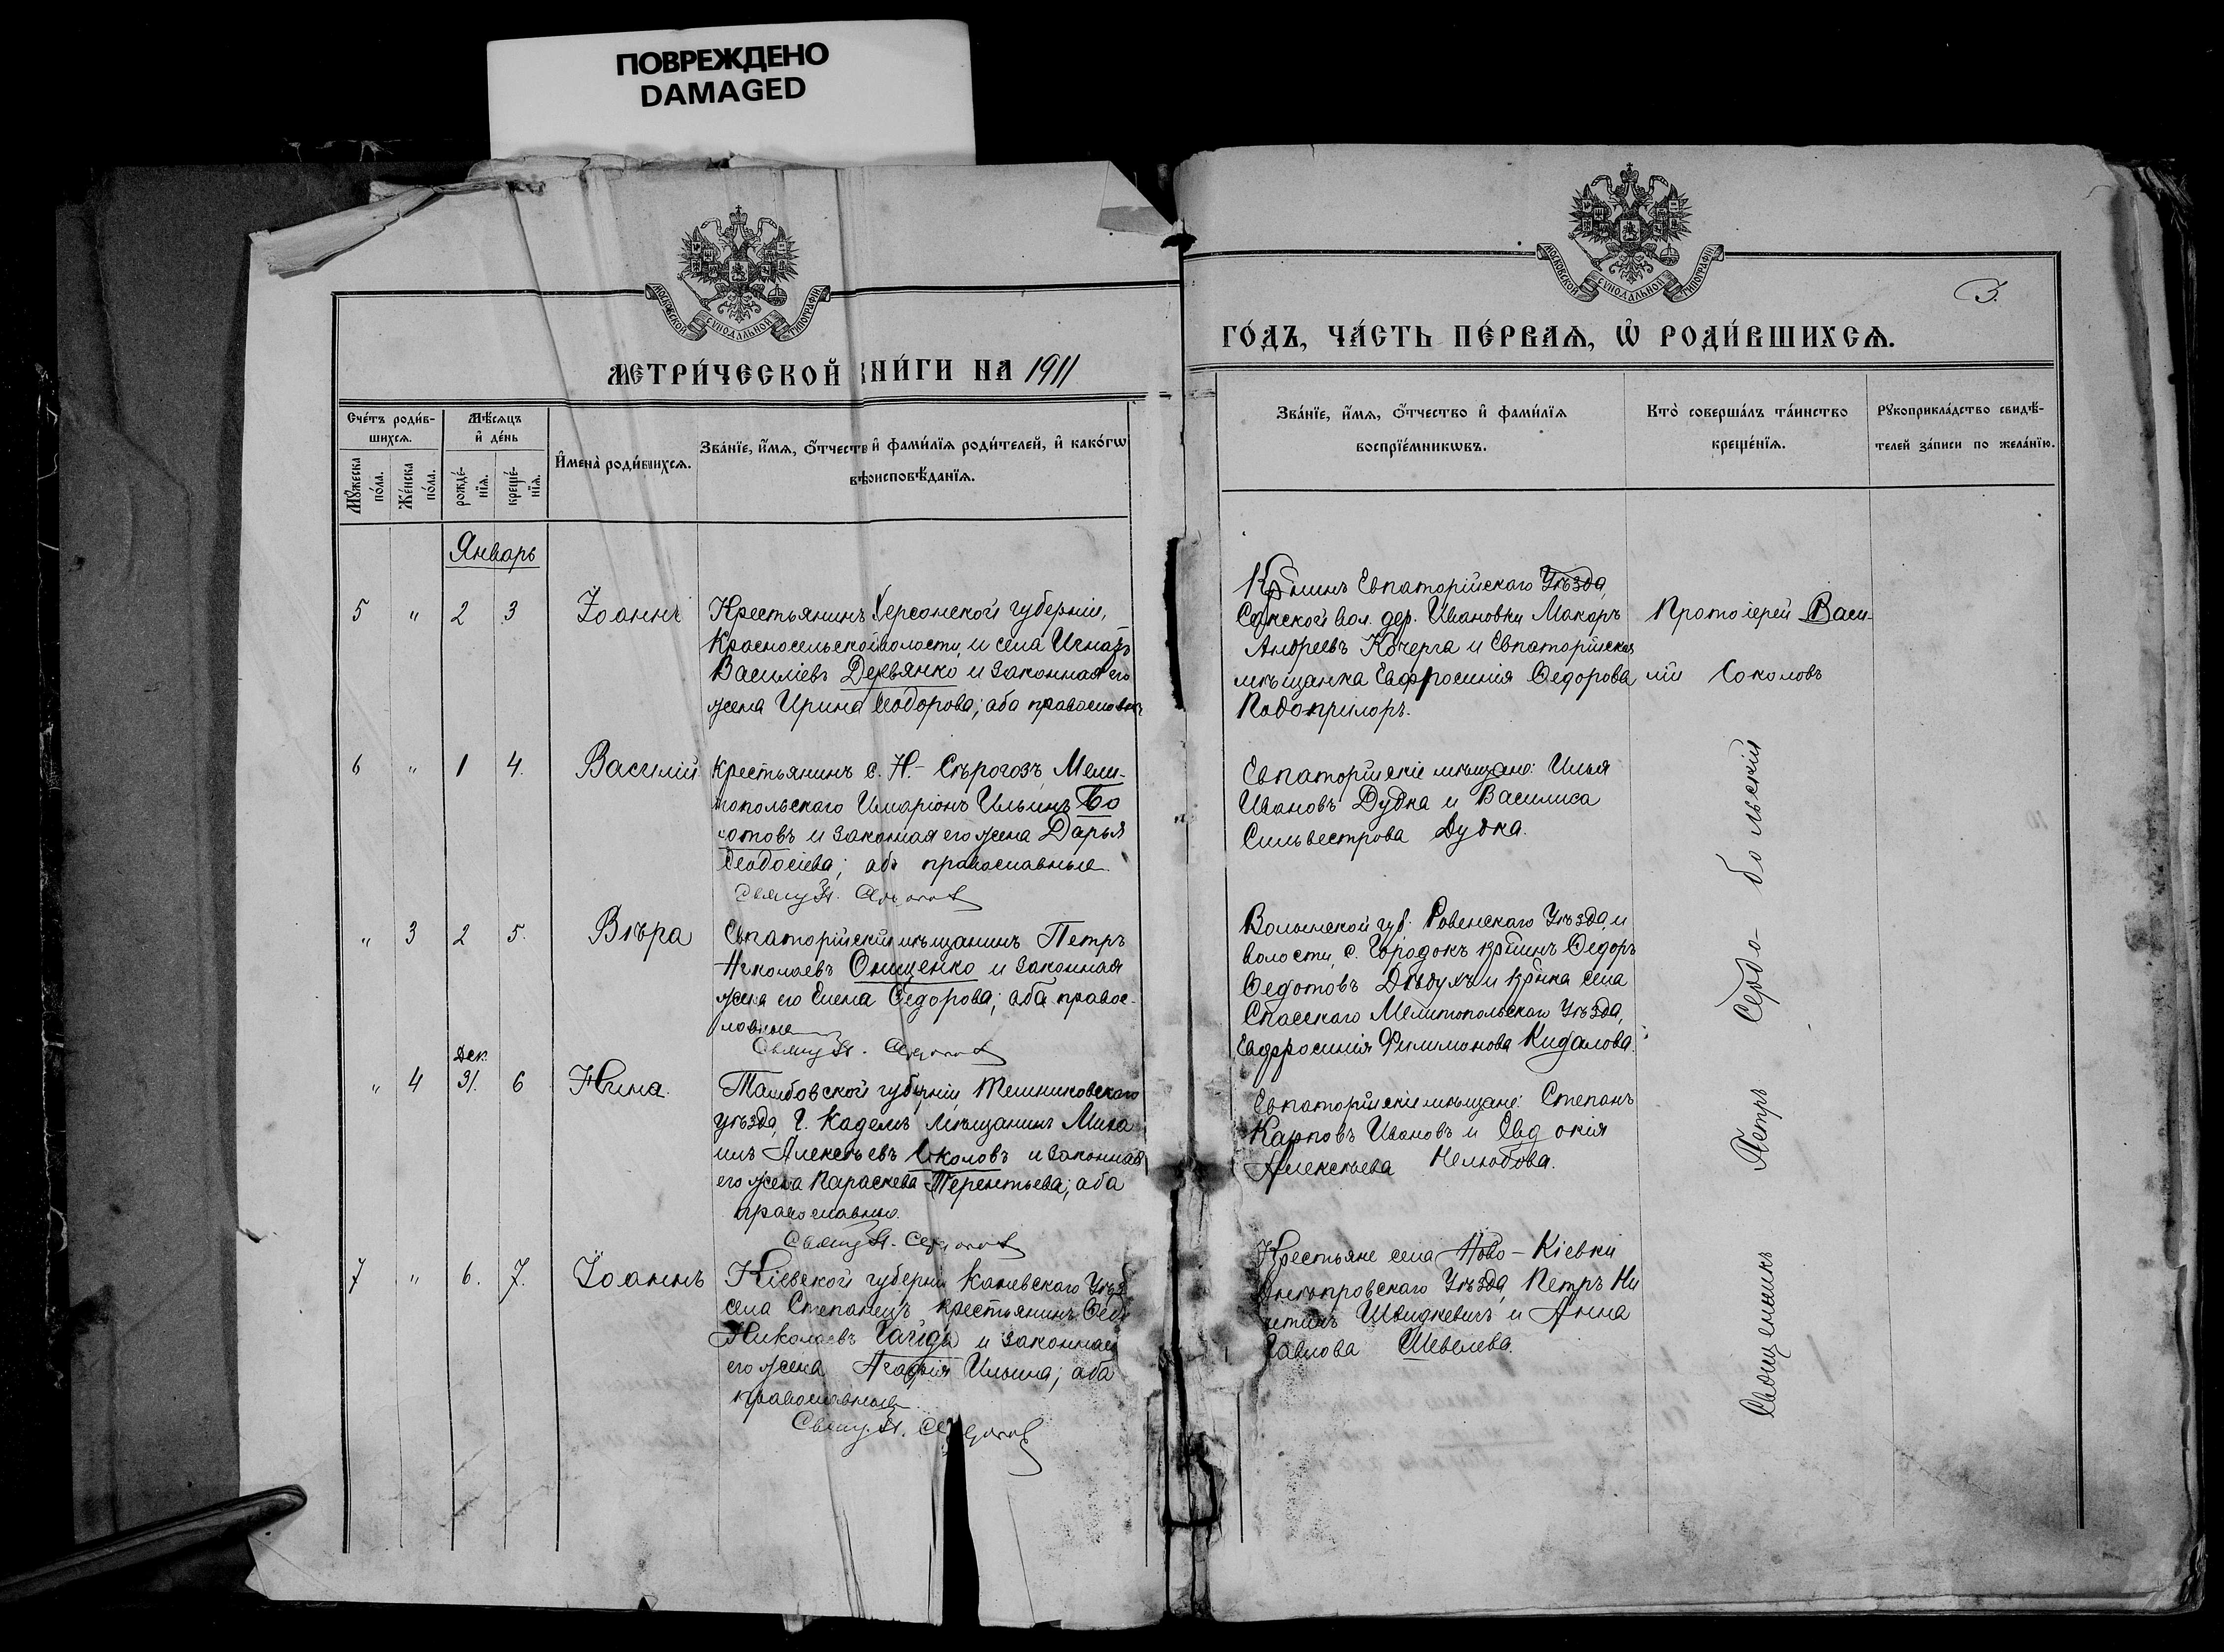 ПОВРЕЖДЕНО
DAMAGED
МОСКОВСКОЙ СѴНОДАЛЬНОЙ ТИПОГРАФІИ
МЕТРИ́ЧЕСКОЙ КНИ́ГИ НА 1911
Сче́тъ роди́в-
шихсѧ.
Мѣ́сѧцъ
и҆ де́нь
Мꙋ́жеска
по́ла.
Же́нска
по́ла.
рожде́-
нїѧ.
креще́-
нїѧ.
И҆мена̀ роди́вшихсѧ.
Зва́нїе, и҆́мѧ, ѻ҆́тчество и҆ фами́лїѧ роди́телей, и҆ како́гѡ
вѣроисповѣ́данїѧ.
Январь
5 " 2 3 Іоаннъ Крестьянинъ Херсонской губерніи,
Красносельской волости, и села Игнатъ
Василіевъ Деревянко и законная его
жена Ирина Ѳеодорова; оба православн
6 " 1 4. Василій Крестьянинъ с. Н.-Сѣрогозъ, Мели-
топольскаго Иларіонъ Ильинъ Бо
готовъ и законная его жена Дарья
Ѳеодосіева; оба православные.
Свящ. П.
" 3 2 5. Вѣра Евпаторійскій мѣщанинъ Петръ
Николаевъ Онищенко и законная
жена его Елена Ѳедорова; оба правос-
лавные
Свящ. П.
Дек.
" 4 31. 6 Нина. Тамбовской губерніи, Темниковскаго
уѣзда, г. Кадомъ мѣщанинъ Миха
илъ Алексѣевъ Соколовъ и законная
его жена Параскева Терентьева; оба
православные.
Свящ. П.
7 " 6. 7. Іоаннъ Кіевской губерніи Каневскаго Уѣзд
села Степанецъ крестьянинъ Ѳед
Николаевъ Гайда и законная
его жена Агафія Ильина; оба
православные.
Свящ. П.
МОСКОВСКОЙ СѴНОДАЛЬНОЙ ТИПОГРАФІИ
3.
ГО́ДЪ, ЧА́СТЬ ПЕ́РВАѦ, Ѡ҆ РОДИ́ВШИХСѦ.
Зва́нїе, и҆́мѧ, ѻ҆́тчество и҆ фами́лїѧ
воспрїе́мникѡвъ.
Кто̀ соверша́лъ та́инство
креще́нїѧ.
Рꙋкоприкла́дство свидѣ́-
телей за́писи по жела́нїю.
Кр̃нинъ Евпаторійскаго Уѣзда,
Сакской вол. дер. Ивановки Макаръ
Андреевъ Кочерга и Евпаторійская
мѣщанка Евфросинія Ѳедорова
Подопригоръ.
Протоіерей Васи-
лій Соколовъ
Евпаторійскіе мѣщане: Илья
Ивановъ Дудка и Василиса
Сильвестрова Дудка.
Волынской губ. Ровенскаго Уѣзда, и
волости, с. Городокъ кр̃нинъ Ѳедоръ
Ѳедотовъ и кр̃нка села
Спасскаго Мелитопольскаго Уѣзда,
Евфросинія Филимонова Кидалова.
Евпаторійскіе мѣщане: Степанъ
Карповъ Ивановъ и Евдокія
Алексѣева Нелюбова.
Крестьяне села Ново-Кіевки
Днѣпровскаго Уѣзда, Петръ Ни
китинъ Швидкевичъ и Анна
Павлова Шевелева.
Священникъ Петръ Сербо-больскій